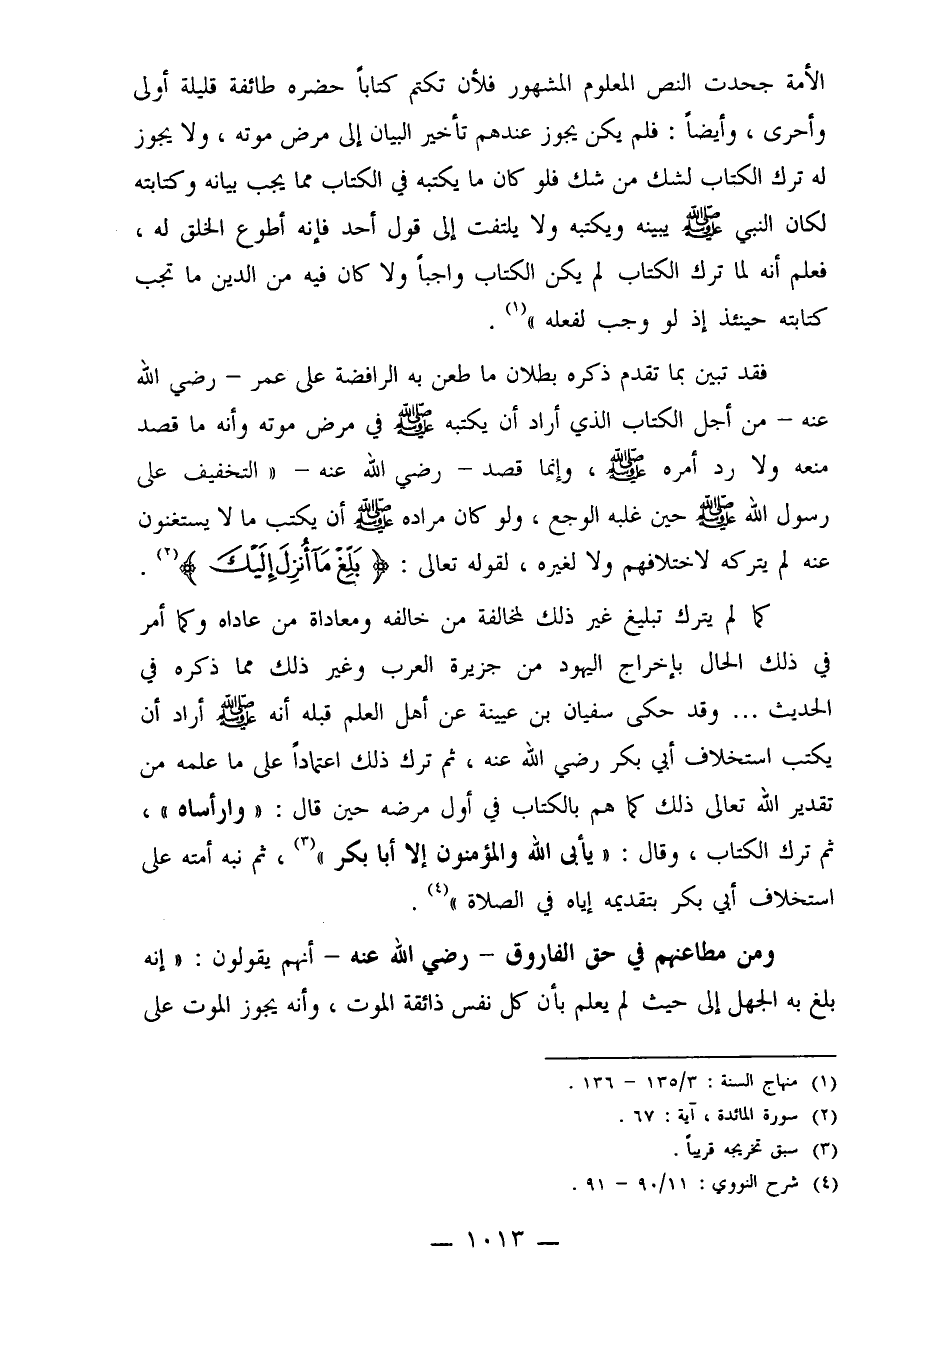 الأمة جحدت النص المعلوم المشهور فلأن تكتم كتاباً حضره طائفة قليلة أولى
وأحرى ، وأيضاً : فلم يكن يجوز عندهم تأخير البيان إلى مرض موته ، ولا يجوز
له ترك الكتاب لشك من شك فلو كان ما يكتبه في الكتاب مما يجب بيانه وكتابته
لكان النبي ﷺ يبينه ويكتبه ولا يلتفت إلى قول أحد فإنه أطوع الخلق له ،
فعلم أنه لما ترك الكتاب لم يكن الكتاب واجباً ولا كان فيه من الدين ما تجب
كتابته حينئذ إذ لو وجب لفعله »(١) .
فقد تبين بما تقدم ذكره بطلان ما طعن به الرافضة على عمر – رضي الله
عنه – من أجل الكتاب الذي أراد أن يكتبه ﷺ في مرض موته وأنه ما قصد
منعه ولا رد أمره ﷺ ، وإنما قصد – رضي الله عنه – « التخفيف على
رسول الله ﷺ حين غلبه الوجع ، ولو كان مراده ﷺ أن يكتب ما لا يستغنون
عنه لم يتركه لاختلافهم ولا لغيره ، لقوله تعالى : ﴿ بَلِّغْ مَآ أُنزِلَ إِلَيْكَ ﴾(٢) .
كما لم يترك تبليغ غير ذلك لمخالفة من خالفه ومعاداة من عاداه وكما أمر
في ذلك الحال بإخراج اليهود من جزيرة العرب وغير ذلك مما ذكره في
الحديث ... وقد حكى سفيان بن عيينة عن أهل العلم قبله أنه ﷺ أراد أن
يكتب استخلاف أبي بكر رضي الله عنه ، ثم ترك ذلك اعتماداً على ما علمه من
تقدير الله تعالى ذلك كما هم بالكتاب في أول مرضه حين قال : « وارأساه » ،
ثم ترك الكتاب ، وقال : « يأبى الله والمؤمنون إلا أبا بكر »(٣) ، ثم نبه أمته على
استخلاف أبي بكر بتقديمه إياه في الصلاة »(٤) .
ومن مطاعنهم في حق الفاروق – رضي الله عنه – أنهم يقولون : « إنه
بلغ به الجهل إلى حيث لم يعلم بأن كل نفس ذائقة الموت ، وأنه يجوز الموت على
(١) منهاج السنة : ١٣٥/٣ – ١٣٦ .
(٢) سورة المائدة ، آية : ٦٧ .
(٣) سبق تخريجه قريباً .
(٤) شرح النووي : ٩٠/١١ – ٩١ .
— ١٠١٣ —